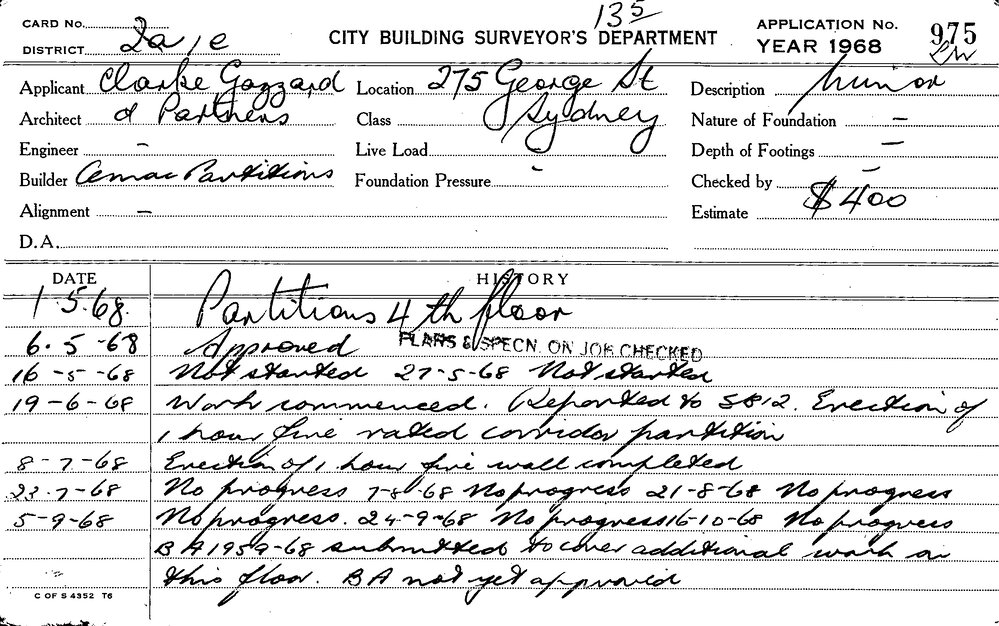 135
CARD No. APPLICATION No. 975
DISTRICT 2a/e CITY BUILDING SURVEYOR'S DEPARTMENT YEAR 1968
Applicant Clarke Gazzard Location 275 George St Description Minor
Architect & Partners Class Sydney Nature of Foundation —
Engineer - Live Load Depth of Footings —
Builder Cemac Partitions Foundation Pressure - Checked by —
Alignment — Estimate $400
D.A.
DATE HISTORY
1.5.68. Partitions 4th floor
6.5-68 Approved PLANS & SPECN. ON JOB CHECKED
16-5-68 Not started 27-5-68 Not started
19-6-68 Work commenced. Reported to S812. Erection of
1 hour fire rated corridor partition
8-7-68 Erection of 1 hour fire wall completed
23.7-68 No progress 7-8-68 No progress 21-8-68 No progress
5-9-68 No progress. 24-9-68 No progress 16-10-68 No progress
BA1959-68 submitted to cover additional work on
this floor. BA not yet approved
C OF S 4352 T6